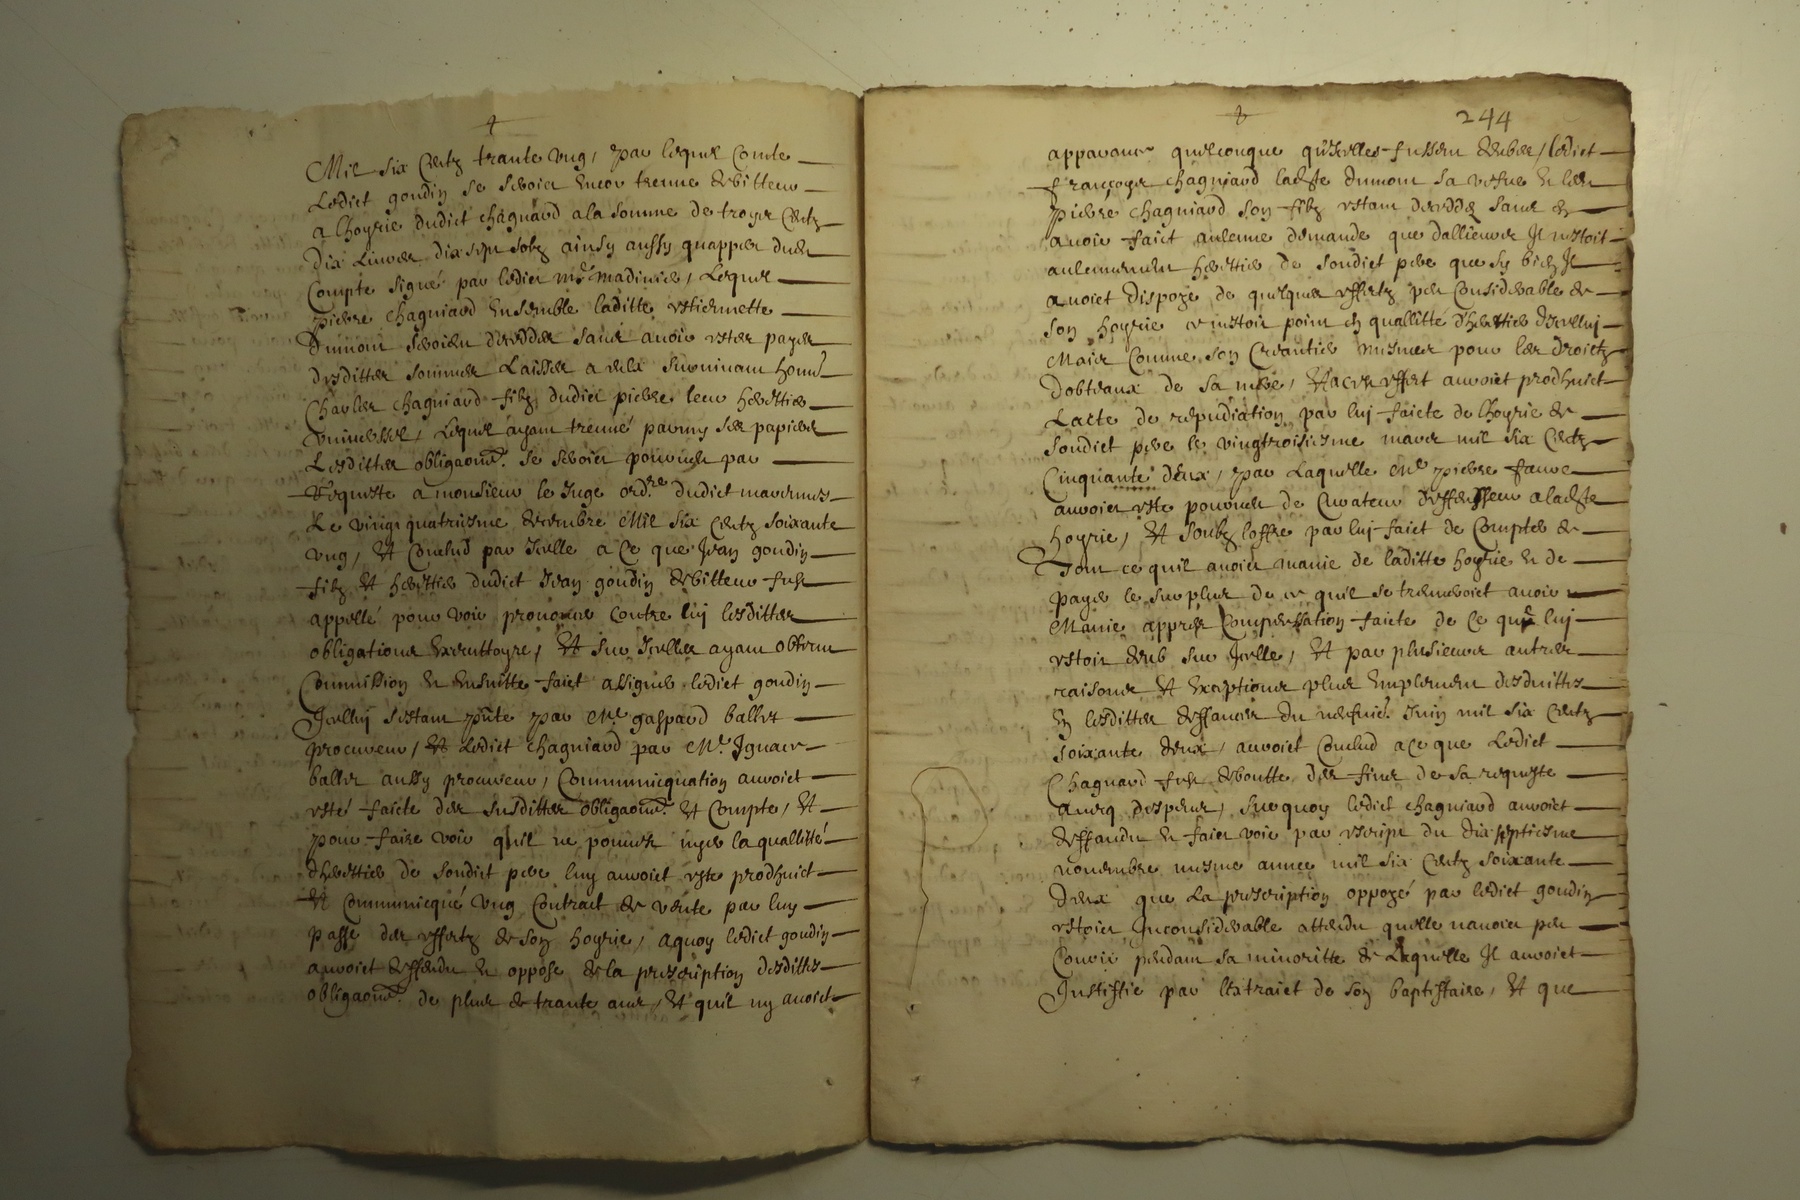 Mil six centz trante ung, par lequel Comte
Ledict goudin se seroict encor treuué debitteur
a lhoyrie dudict chagniard a la somme de troys Centz
Dix Liures dix sept solz ainsy aussy quappert dudt
Compte signé par ledict me madinier, Lequel
pierre chagniard Ensemble laditte estiennette
Dumont seroient deceddes sans auoir estes payes
desditter sommes Laisser a eulx suruiuant honnt
Charles chagniard filz dudict pierre leur herittier
vniuersel, lequel ayant treuué parmy ses papiers
Lesdittes obligaons. se seroict pourueu par
Requeste a monsieur le Juge ordre. dudict
Le vingt quatriesme decembre Mil six Centz soixante
vng, Et Conclud par Icelle a Ce que Jean goudin
filz Et herittier dudict Jean goudin debitteur fust
appellé pour voir prononcer Contre luy lesdittes
obligations Executtoyre, Et sur Icelles ayant obtenu
Commission et Ensuitte faict assigner ledict goudin
Icelluy sestant pnte par Me. gaspard ballet
procureur, Et Ledict chagniard par Me. Ignace
ballet aussy procureur, Communicquation auroict
esté faicte des susdittes obligaons. Et Compte, Et
pour faire voir quil ne pouuoit nyer la quallitté
dherittier de sondict pere luy auroict este prodhuict
Et Communicqué vng Contract de vente par luy
passé des effectz de son hoyrie, aquoy ledict goudin
auroict deffendu et opposé de la prescription desdittes
obligaons. de plus de trante ans, Et quil ny auoict
244
apparance quelconque qu'Icelles fussent deubes, ledict
françoys chagniard laditte dumont sa vefue et ledt
pierre chagniard son filz estant deceddez sans en
auoir faict aulcune demande que dallieurs Il nestoit
aulcunement herittier de sondict pere que sy bien Il
auoict dispozé de quelques effectz peu Considerable de
son hoyrie ce nestoit point en quallitté dherittier dicelluy
Mais Comme son Creantier mesmes pour les droictz
dobteaux de sa mere, Et a ces effect auroict prodhuict
Lacte de repudiation par luy faicte de lhoyrie de
sondict pere le vingtroisiesme mars mil six Centz
Cinquante deux, par Laquelle Me pierre faure
auroict este pourueu de Curateur deffenseur a laditte
hoyrie, Et soubz loffre par luy faict de Compter de
Tout ce quil auoict manié de laditte hoyrie et de
payer le surplus de ce quil se treuueroict auoir
Manié appres Compensation faicte de Ce que luy
estoit deub sur Icelle, Et par plusieurs autres
raisons Et Exceptions plus Emplement desduittes
En lesdittes deffances du neufuie. Juin mil six Centz
soixante deux, auroict Conclud a Ce que Ledict
Chagniard fust deboutte des fins de sa requeste
Auecq despens, surquoy ledict chagniard auroict
deffandu et faict voir par escript du dix septiesme
nouembre mesme annee mil six Centz soixante
Deux que La prescription oppozé par ledict goudin
estoict Inconsiderable attendu quelle nauoict peu
Courir pendant sa minoritté de Laquelle Il auroict
Justiffié par lExtraict de son baptistaire, Et que